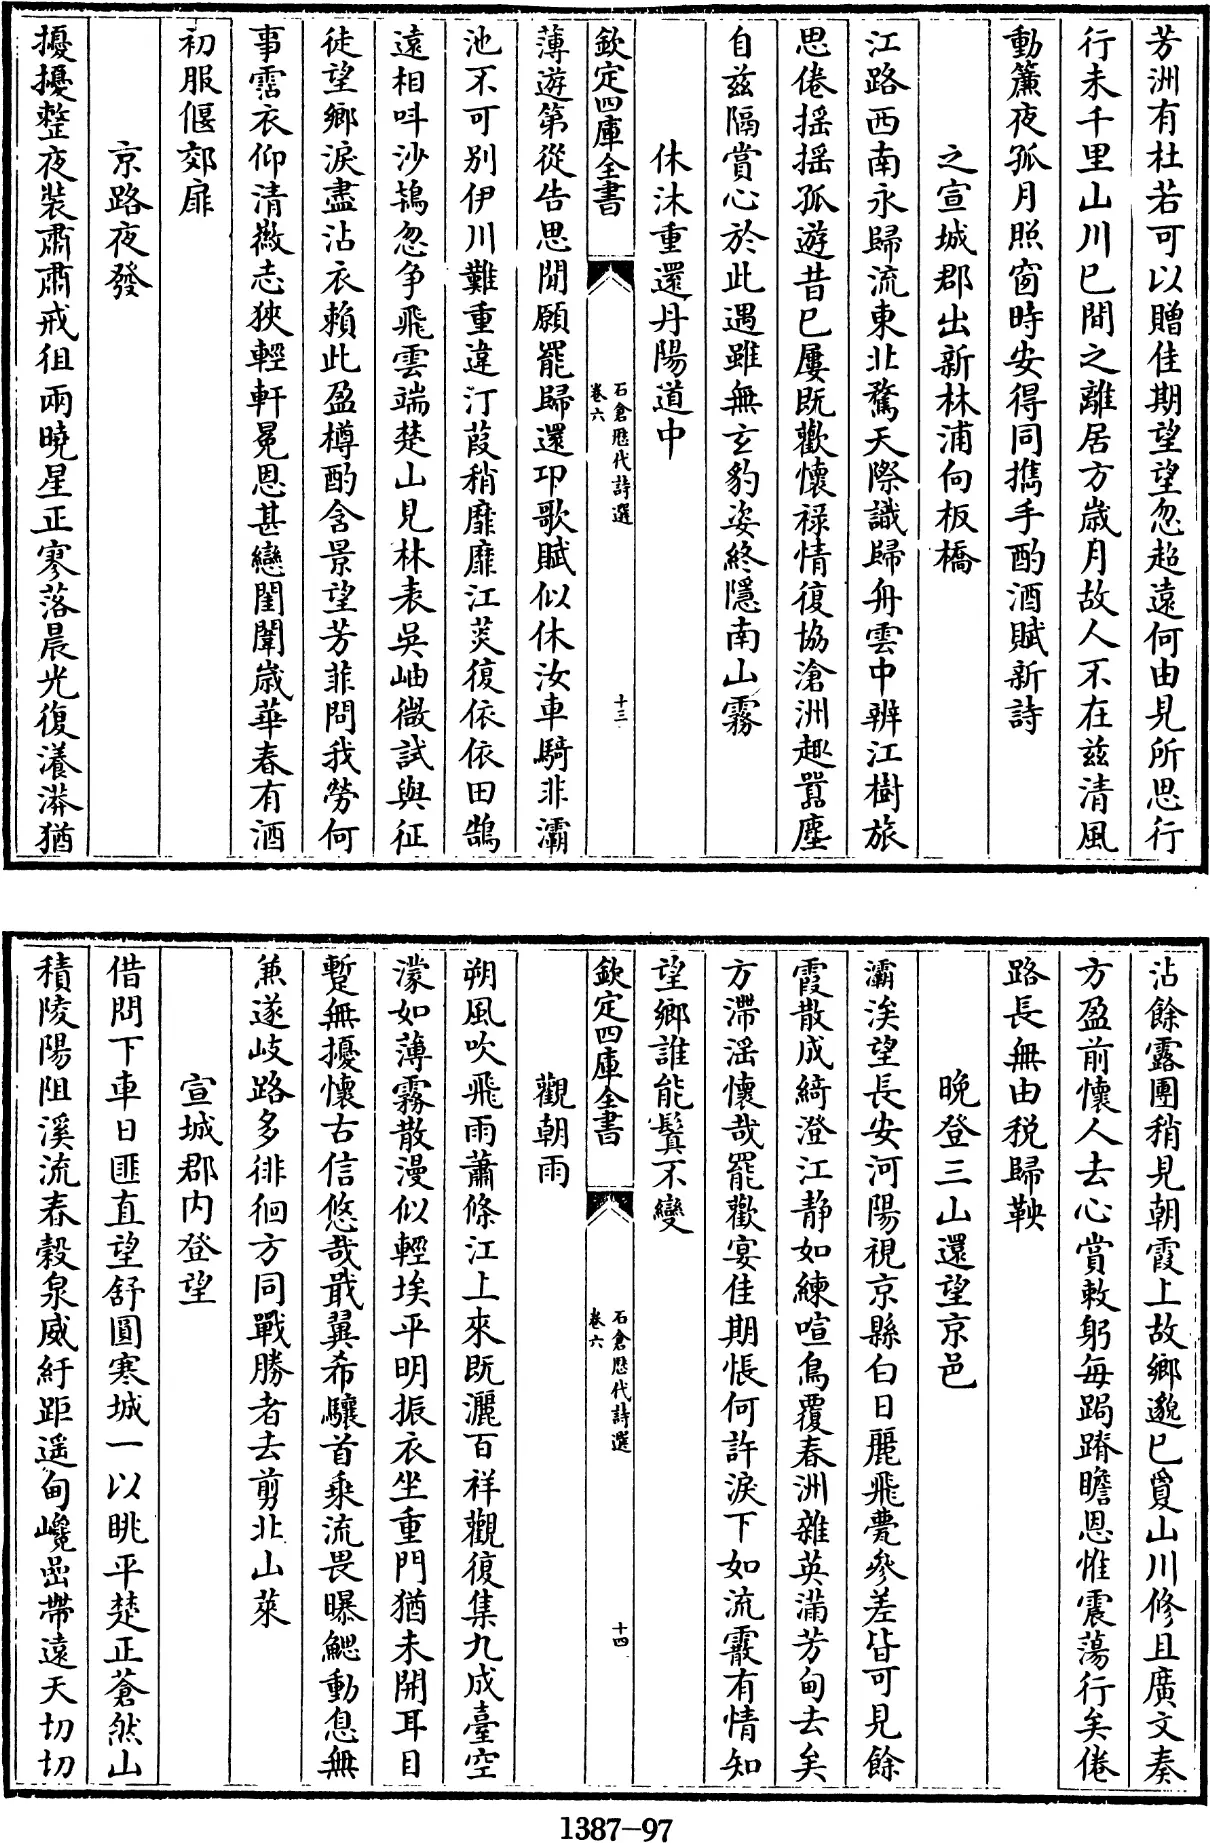 芳洲有杜若可以贈佳期望望忽超遠何由見所思行
行未千里山川已間之離居方歲月故人不在兹清風
動簾夜孤月照窗時安得同攜手酌酒賦新詩
之宣城郡出新林浦向板橋
江路西南永歸流東北騖天際識歸舟雲中辨江樹旅
思倦揺揺孤遊昔已屢既歡懷禄情復協滄洲趣囂塵
自兹隔賞心於此遇雖無玄豹姿終隱南山霧
休沐重還丹陽道中
欽定四庫全書
石倉歷代詩選
卷六
十三
薄遊第從告思閒願罷歸還卭歌賦似休汝車騎非灞
池不可别伊川難重違汀葭稍靡靡江菼復依依田鵠
遠相呌沙鴇忽争飛雲端楚山見林表吳岫微試與征
徒望鄉淚盡沾衣賴此盈樽酌含景望芳菲問我勞何
事霑衣仰清徽志狹輕軒冕恩甚戀閨闈歲華春有酒
初服偃郊扉
京路夜發
擾擾整夜裝肅肅戒徂兩曉星正寥落晨光復瀁漭猶
沾餘露團稍見朝霞上故鄉邈已敻山川修且廣文奏
方盈前懷人去心賞敕躬每跼蹐瞻恩惟震蕩行矣倦
路長無由税歸鞅
晚登三山還望京邑
灞涘望長安河陽視京縣白日麗飛甍參差皆可見餘
霞散成綺澄江静如練喧鳥覆春洲雜英滿芳甸去矣
方滯滛懷哉罷歡宴佳期悵何許淚下如流霰有情知
望鄉誰能鬒不變
欽定四庫全書
石倉歷代詩選
卷六
十四
觀朝雨
朔風吹飛雨蕭條江上來既灑百祥觀復集九成臺空
濛如薄霧散漫似輕埃平明振衣坐重門猶未開耳目
暫無擾懷古信悠哉戢翼希驤首乗流畏曝鰓動息無
兼遂岐路多徘徊方同戰勝者去翦北山萊
宣城郡内登望
借問下車日匪直望舒圓寒城一以眺平楚正蒼然山
積陵陽阻溪流春榖泉威紆距遥甸巉嵒帶遠天切切
1387-97